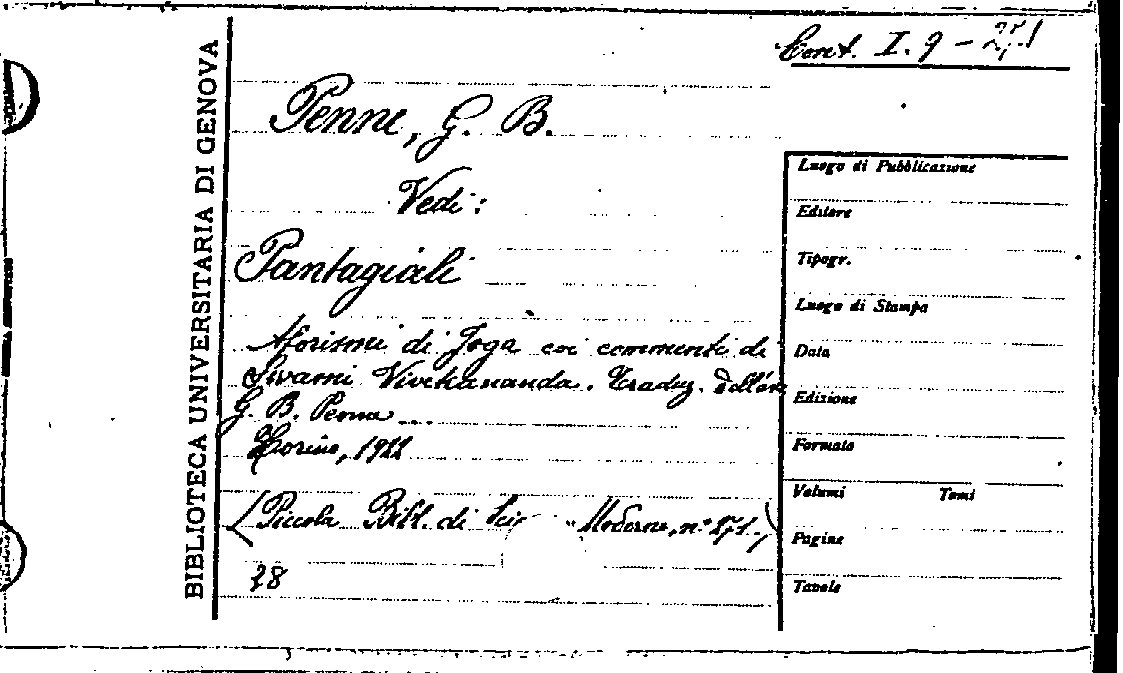 Cont. I. 9 - 271
BIBLIOTECA UNIVERSITARIA DI GENOVA
Penne, G. B.
Vedi:
Pantagiali
Aforismi di Joga coi commenti di
Swami Vivekananda. Traduz. dell'
G. B. Penne ...
Torino, 1922
(Piccola Bibl. di Scie Moderne, n° 271.)
28
Luogo di Pubblicazione
Editore
Tipogr.
Luogo di Stampa
Data
Edizione
Formato
Volumi Tomi
Pagine
Tavole